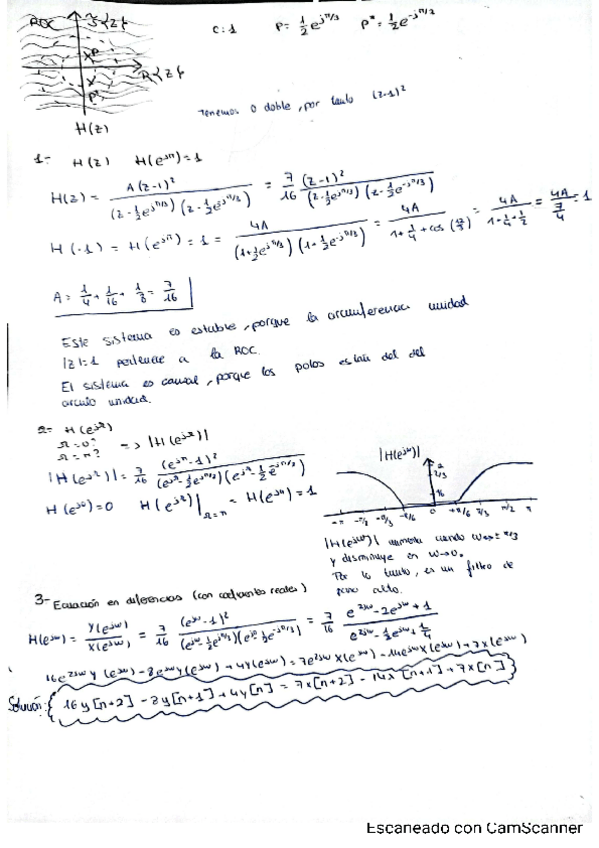 ROC ℑ{z}
R{z}
P
P*
H(z)
C:1 P= 1/2 e^{jπ/3} P*= 1/2 e^{-jπ/2}
Tenemos 0 doble, por tanto (z-1)^2
1- H(z) H(e^{jπ})=1
H(z) = A(z-1)^2 / ((z-1/2 e^{jπ/3})(z-1/2 e^{-jπ/3})) = 7/16 (z-1)^2 / ((z-1/2 e^{jπ/3})(z-1/2 e^{-jπ/3}))
H(-1) = H(e^{jπ}) = 1 = 4A / ((1+1/2 e^{jπ/3})(1+1/2 e^{-jπ/3})) = 4A / (1+1/4+cos(π/3)) = 4A / (1+1/4+1/2) = 4A / (7/4) = 1
A = 1/4 + 1/16 + 1/8 = 7/16
Este sistema es estable, porque la circunferencia unidad
|z|=1 pertenece a la ROC.
El sistema es causal, porque los polos están del del
círculo unidad.
2- H(e^{jΩ})
Ω=0? => |H(e^{jΩ})|
Ω=π?
|H(e^{jΩ})| = 7/16 (e^{jΩ}-1)^2 / ((e^{jΩ}-1/2 e^{jπ/3})(e^{jΩ}-1/2 e^{-jπ/3}))
H(e^{j0})=0 H(e^{jΩ})|_{Ω=π} = H(e^{jπ})=1
|H(e^{jω})|
-π -π/3 -π/6 0 +π/6 π/3 π/2 π
|H(e^{jω})| aumenta cuando ω→±π/3
y disminuye en ω→0.
Por lo tanto, es un filtro de
paso alto.
3- Ecuación en diferencias (con coeficientes reales)
H(e^{jω}) = Y(e^{jω})/X(e^{jω}) = 7/16 (e^{jω}-1)^2 / ((e^{jω}-1/2 e^{jπ/3})(e^{jω}-1/2 e^{-jπ/3})) = 7/16 (e^{2jω}-2e^{jω}+1) / (e^{2jω}-1/2 e^{jω}+1/4)
16e^{2jω}Y(e^{jω}) - 8e^{jω}Y(e^{jω}) + 4Y(e^{jω}) = 7e^{2jω}X(e^{jω}) - 14e^{jω}X(e^{jω}) + 7X(e^{jω})
Solución: 16y[n+2] - 8y[n+1] + 4y[n] = 7x[n+2] - 14x[n+1] + 7x[n]
Escaneado con CamScanner